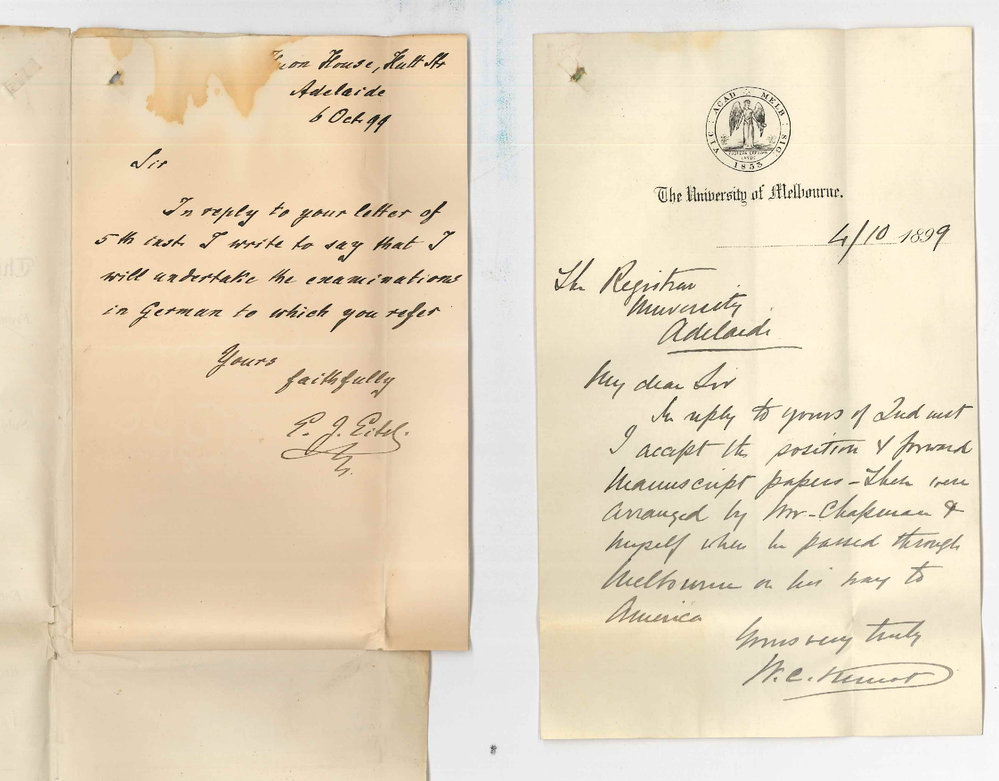 House, Hutt St
Adelaide
6 Oct. 99
Sir
In reply to your letter of
5th inst. I write to say that I
will undertake the examinations
in German to which you refer
Yours
faithfully
E. J. Eitel.
VIC ACAD MELB SIG
1853
The University of Melbourne.
4/10 1899
The Registrar
University
Adelaide
My dear Sir
In reply to yours of 2nd inst
I accept the position & forward
Manuscript papers – These were
arranged by Mr – Chapman &
myself when he passed through
Melbourne on his way to
America
Yours very truly
W. C. Kernot